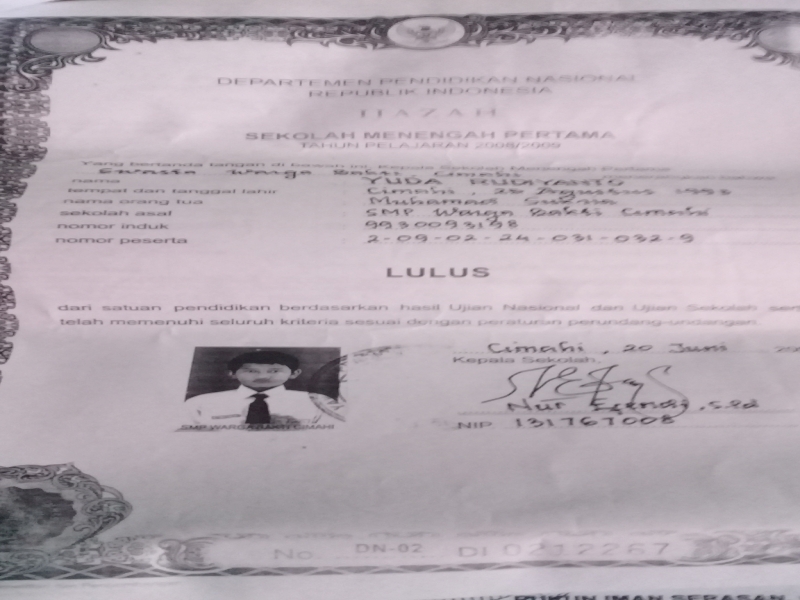 DEPARTEMEN PENDIDIKAN NASIONAL
REPUBLIK INDONESIA
IJAZAH
SEKOLAH MENENGAH PERTAMA
TAHUN PELAJARAN 2008/2009
Yang bertanda tangan di bawah ini, Kepala Sekolah Menengah Pertama
Swasta Warga Bakti Cimahi
nama YUDA RUDIYANTO
tempat dan tanggal lahir Cimahi, Agustus 1993
nama orang tua Muhamad
sekolah asal SMP Warga Bakti Cimahi
nomor induk 9930093198
nomor peserta 2-09-02-24-031-032-9
LULUS
dari satuan pendidikan berdasarkan hasil Ujian Nasional dan Ujian Sekolah
telah memenuhi seluruh kriteria sesuai dengan peraturan perundang-undangan.
Cimahi, 20 Juni
Kepala Sekolah,
Nur S.Pd
NIP 131767008
SMP WARGA BAKTI CIMAHI
No. DN-02 DI 0212267